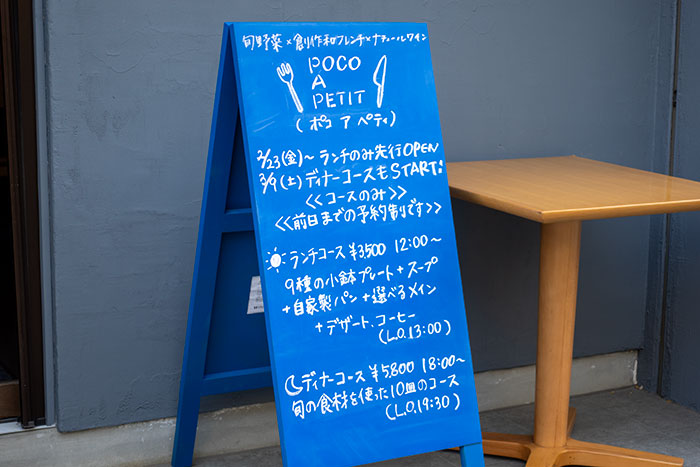 旬野菜×創作和フレンチ×ナチュールワイン
POCO
A
PETIT
(ポコ ア ペティ)
2/23(金)~ ランチのみ先行OPEN
3/9(土)ディナーコースもSTART!
<<コースのみ>>
<<前日までの予約制です>>
ランチコース ¥3,500 12:00~
9種の小鉢プレート+スープ
+自家製パン+選べるメイン
+デザート、コーヒー
(L.O.13:00)
ディナーコース ¥5,800 18:00~
旬の食材を使った10皿のコース
(L.O.19:30)